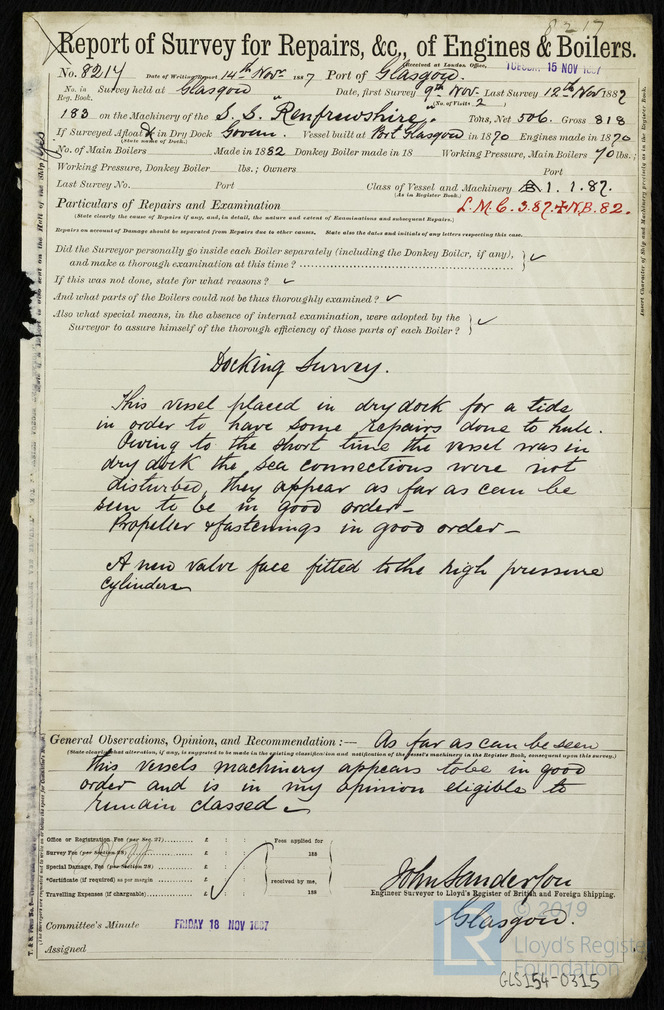 8217
Report of Survey for Repairs, &c., of Engines & Boilers.
(Received at London Office,
No. 8217 Date of Writing Report 14th Novr 1887 Port of Glasgow. TUESDAY 15 NOV 1887
No. in Reg. Book. Survey held at Glasgow Date, first Survey 9th Nov. Last Survey 12th Nov 1887
(No. of Visits 2)
183 on the Machinery of the S. S. "Renfrewshire." Tons, Net 506. Gross 818
If Surveyed Afloat or in Dry Dock Govan. Vessel built at Port Glasgow in 1870 Engines made in 1870
(State name of Dock.)
No. of Main Boilers Made in 1882 Donkey Boiler made in 18 Working Pressure, Main Boilers 70 lbs;
Working Pressure, Donkey Boiler lbs.; Owners Port
Last Survey No. Port Class of Vessel and Machinery B 1. 1. 87.
(As in Register Book.)
Particulars of Repairs and Examination L.M.C. 3.87. + N.B. 82.
(State clearly the cause of Repairs if any, and, in detail, the nature and extent of Examinations and subsequent Repairs.)
Repairs on account of Damage should be separated from Repairs due to other causes. State also the dates and initials of any letters respecting this case.
Did the Surveyor personally go inside each Boiler separately (including the Donkey Boiler, if any),
and make a thorough examination at this time?
If this was not done, state for what reasons?
And what parts of the Boilers could not be thus thoroughly examined?
Also what special means, in the absence of internal examination, were adopted by the
Surveyor to assure himself of the thorough efficiency of those parts of each Boiler?
Docking Survey.
This vessel placed in dry dock for a tide
in order to have some repairs done to hule.
Owing to the short time the vessel was in
dry dock the sea connections were not
disturbed, they appear as far as can be
seen to be in good order-
Propeller & fastenings in good order-
A new valve face fitted to the high pressure
cylinders
General Observations, Opinion, and Recommendation:— As far as can be seen
(State clearly what alteration, if any, is suggested to be made in the existing classification and notification of the vessel's machinery in the Register Book, consequent upon this survey.)
this vessels machinery appears to be in good
order and is in my opinion eligible to
remain classed
Office or Registration Fee (per Sec. 27) £ : : Fees applied for
Survey Fee (per Section 28) £ : : 188
Special Damage, Fee (per Section 28) £ : :
*Certificate (if required) as per margin £ : : received by me,
Travelling Expenses (if chargeable) £ : : 188
John Sanderson
Engineer Surveyor to Lloyd's Register of British and Foreign Shipping.
Committee's Minute FRIDAY 18 NOV 1887 Glasgow.
Assigned
© 2019
LR
Lloyd's Register
Foundation
GLS154-0315
Insert Character of Ship and Machinery precisely as in the Register Book.